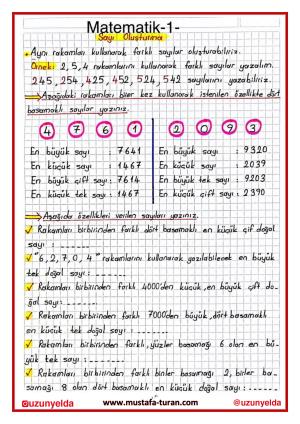 Matematik-1-
Sayı Oluşturma
• Aynı rakamları kullanarak farklı sayılar oluşturabiliriz.
Örnek: 2, 5, 4 rakamlarını kullanarak farklı sayılar yazalım.
245, 254, 425, 452, 524, 542 sayılarını yazabiliriz.
Aşağıdaki rakamları birer kez kullanarak istenilen özellikte dört
basamaklı sayılar yazınız.
4 7 6 1
2 0 9 3
En büyük sayı : 7641
En büyük sayı : 9320
En küçük sayı : 1467
En küçük sayı : 2039
En büyük çift sayı : 7614
En büyük tek sayı : 9203
En küçük tek sayı : 1467
En küçük çift sayı : 2390
Aşağıda özellikleri verilen sayıları yazınız.
Rakamları birbirinden farklı dört basamaklı en küçük çif doğal
sayı : ------
"6, 2, 7, 0, 4" rakamlarını kullanarak yazılabilecek en büyük
tek doğal sayı : ------
Rakamları birbirinden farklı 4000'den küçük, en büyük çift do-
ğal sayı : ------
Rakamları birbirinden farklı 7000'den büyük, dört basamaklı
en küçük tek doğal sayı : ------
Rakamları birbirinden farklı, yüzler basamağı 6 olan en bü-
yük tek sayı : ------
Rakamları birbirinden farklı binler basamağı 2, birler ba-
samağı 8 olan dört basamaklı en küçük sayı : ------
@uzunyelda
www.mustafa-turan.com
@uzunyelda